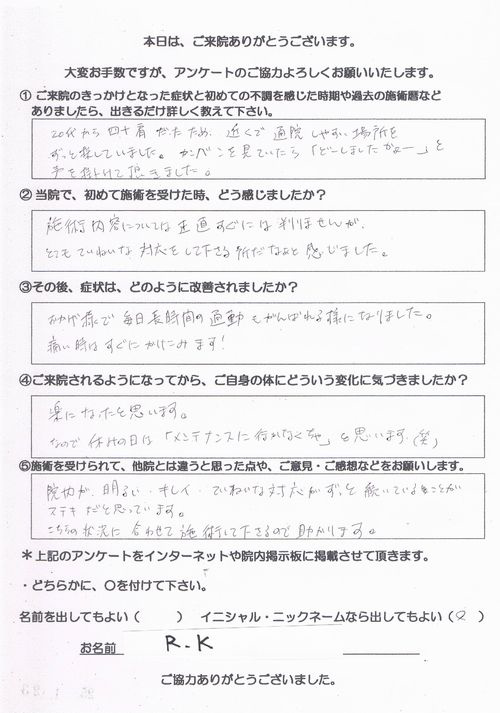 本日は、ご来院ありがとうございます。
大変お手数ですが、アンケートのご協力よろしくお願いいたします。
① ご来院のきっかけとなった症状と初めての不調を感じた時期や過去の施術暦など
ありましたら、出きるだけ詳しく教えて下さい。
20代から四十肩だったため、近くで通院しやすい場所を
ずっと探していました。カンバンを見ていたら「どーしましたかぁー」と
声を掛けて頂きました。
② 当院で、初めて施術を受けた時、どう感じましたか？
施術内容については正直すぐには判りませんが、
とてもていねいな対応をして下さる所だなぁと感じました。
③その後、症状は、どのように改善されましたか？
おかげ様で毎日長時間の通勤もがんばれる様になりました。
痛い時はすぐにかけこみます！
④ご来院されるようになってから、ご自身の体にどういう変化に気づきましたか？
楽になったと思います。
なので休みの日は「メンテナンスに行かなくちゃ」と思います。(笑)
⑤施術を受けられて、他院とは違うと思った点や、ご意見・ご感想などをお願いします。
院内が明るい・キレイ・ていねいな対応がずっと続いていることが
ステキだと思っています。
こちらの状況に合わせて施術して下さるので助かります。
＊上記のアンケートをインターネットや院内掲示板に掲載させて頂きます。
・どちらかに、〇を付けて下さい。
名前を出してもよい（　　）　イニシャル・ニックネームなら出してもよい（〇）
お名前 R.K
ご協力ありがとうございました。